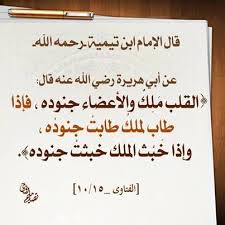 قال الإمام ابن تيمية ـ رحمه الله ـ
عن أبي هريرة رضي الله عنه قال:
﴿القلب ملك والأعضاء جنوده ، فإذا
طاب الملك طابت جنوده ،
وإذا خبث الملك خبثت جنوده﴾.
[الفتاوى _ ١٠/١٥]